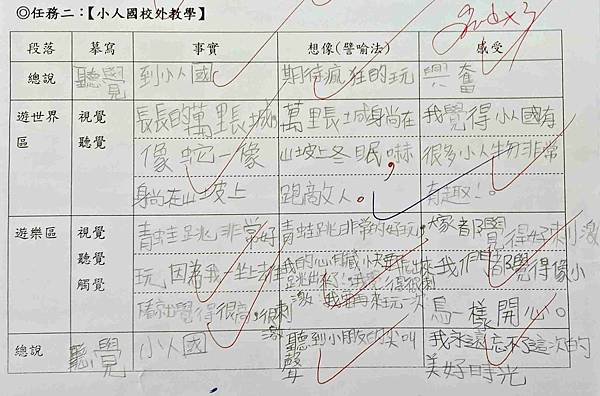 ◎任務二：【小人國校外教學】
段落 摹寫 事實 想像(譬喻法) 感受
總說 聽覺 到小人國 期待瘋狂的玩 興奮
遊世界區 視覺 聽覺
長長的萬里長城
像蛇一像
身尚在山坡上
萬里長城身尚在
山坡上冬眠,嚇
跑敵人。
我覺得小人國有
很多小人物非常
有趣!。
遊樂區 視覺 聽覺 觸覺
青蛙跳非常好
玩,因為我一坐上去
就覺得很高,很刺激
青蛙跳非常的好玩,
我的心臟快要飛出來
跳出來
激,我還要再來玩一次
大家都覺得好刺激
我們都覺得像小
鳥一樣開心。
總說 聽覺 小人國
聽到小朋友的尖叫
聲
我永遠忘不了這次的
美好時光